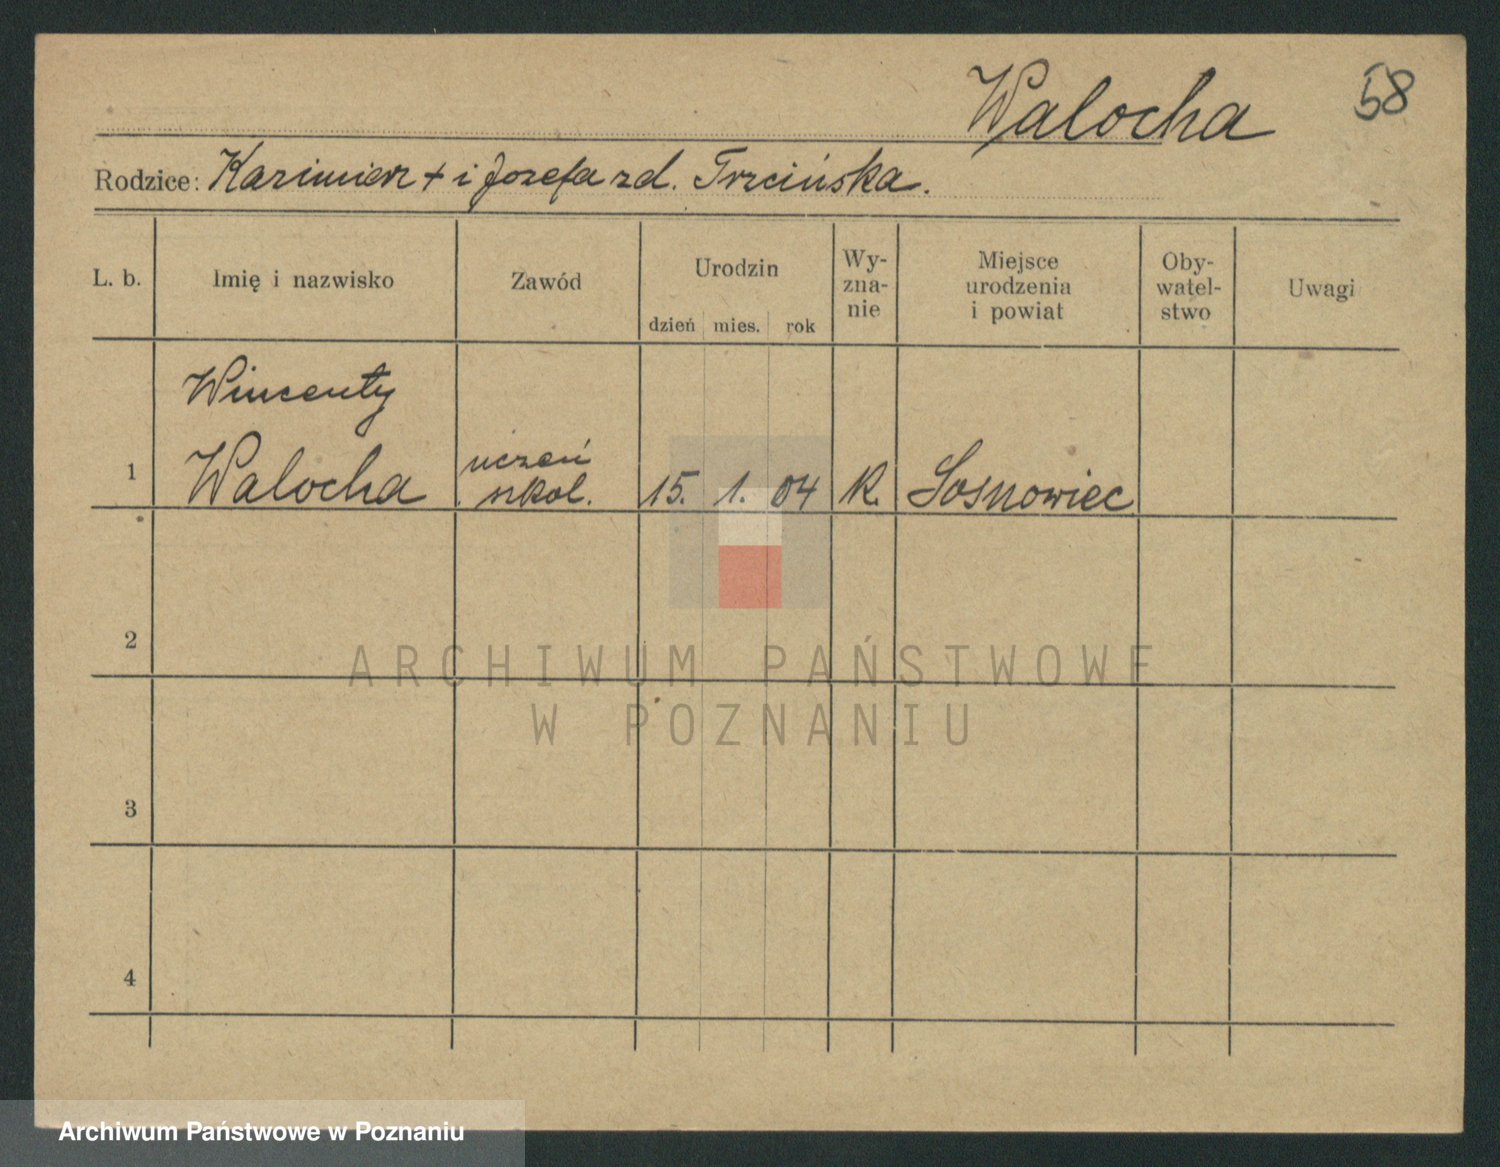 Walocha
58
Rodzice: Kazimierz + i Józefa zd. Trzcińska.
L. b.
Imię i nazwisko
Zawód
Urodzin
dzień mies. rok
Wy-
zna-
nie
Miejsce
urodzenia
i powiat
Oby-
watel-
stwo
Uwagi
Wincenty
1 Walocha
uczeń
szkol.
15. 1. 04 K. Sosnowiec
2
3
4
ARCHIWUM PAŃSTWOWE
W POZNANIU
Archiwum Państwowe w Poznaniu